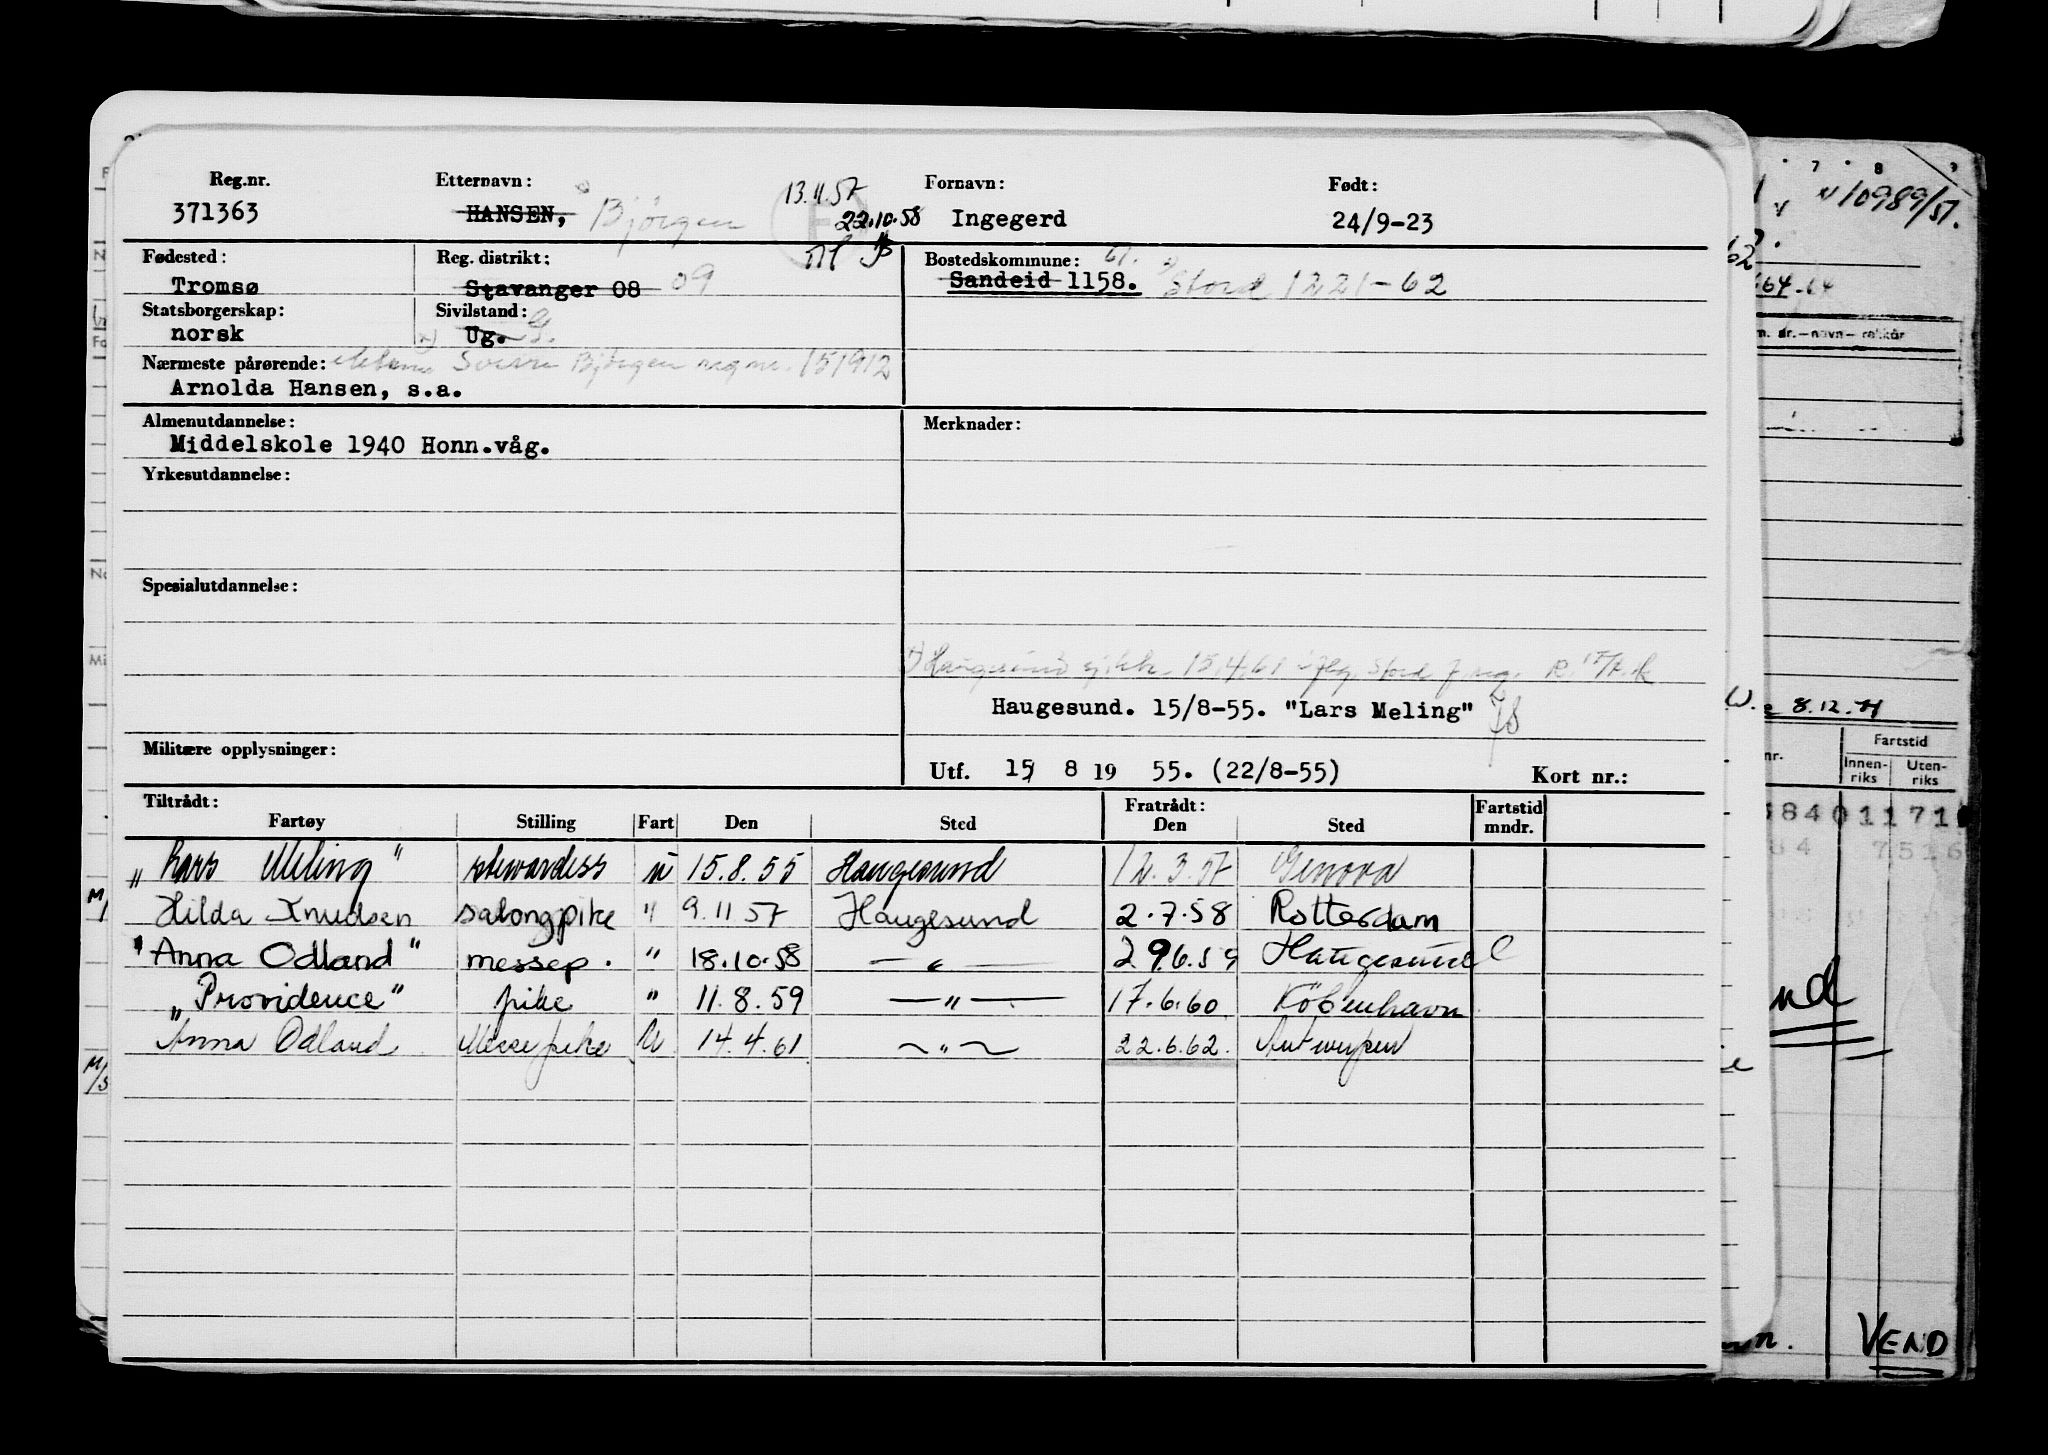 Reg.nr. Etternavn: Fornavn: Født:
371363 HANSEN, Bjørgen 13.11.57 22.10.58 Ingegerd 24/9-23
Fødested: Reg. distrikt: Bostedskommune:
Tromsø Stavanger 08 09 Sandeid 1158. Stord 1221-62
Statsborgerskap: Sivilstand:
norsk Ug. G.
Nærmeste pårørende: Bjørgen reg nr. 151912
Arnolda Hansen, s.a.
Almenutdannelse: Merknader:
Middelskole 1940 Honn.våg.
Yrkesutdannelse:
Spesialutdannelse:
Haugesund sjikk. 15.4.61 Stord
Haugesund. 15/8-55. "Lars Meling"
Militære opplysninger:
Utf. 15 8 19 55. (22/8-55) Kort nr.:
Tiltrådt: Fratrådt: Fartstid
Fartøy Stilling Fart Den Sted Den Sted mndr.
„Lars Meling" stewardess u 15.8.55 Haugesund 12.3.57 Genova
Hilda Knudsen salongpike " 9.11 57 Haugesund 2.7.58 Rotterdam
"Anna Odland" messep. " 18.10.58 — " — 29.6.59 Haugesund
„Providence" pike " 11.8.59 — " — 17.6.60 København
Anna Odland Messepike U 14.4.61 ~ " ~ 22.6.62. Antwerpen
7 8
10989/57.
64
m. nr.—navn—rekkår
8.12.71
nr. Fartstid
Innen-riks Uten-riks
8401171
84 7516
nd
VEND